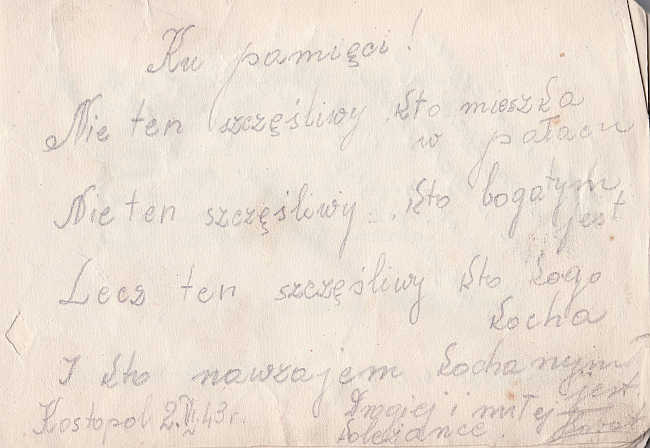 Ku pamięci!
Nie ten szczęśliwy kto mieszka
w pałacu
Nie ten szczęśliwy kto bogatym
jest
Lecz ten szczęśliwy kto kogo
kocha
I kto nawzajem kochanym
jest
Kostopol 2.VI.43 r. Drogiej i miłej
koleżance